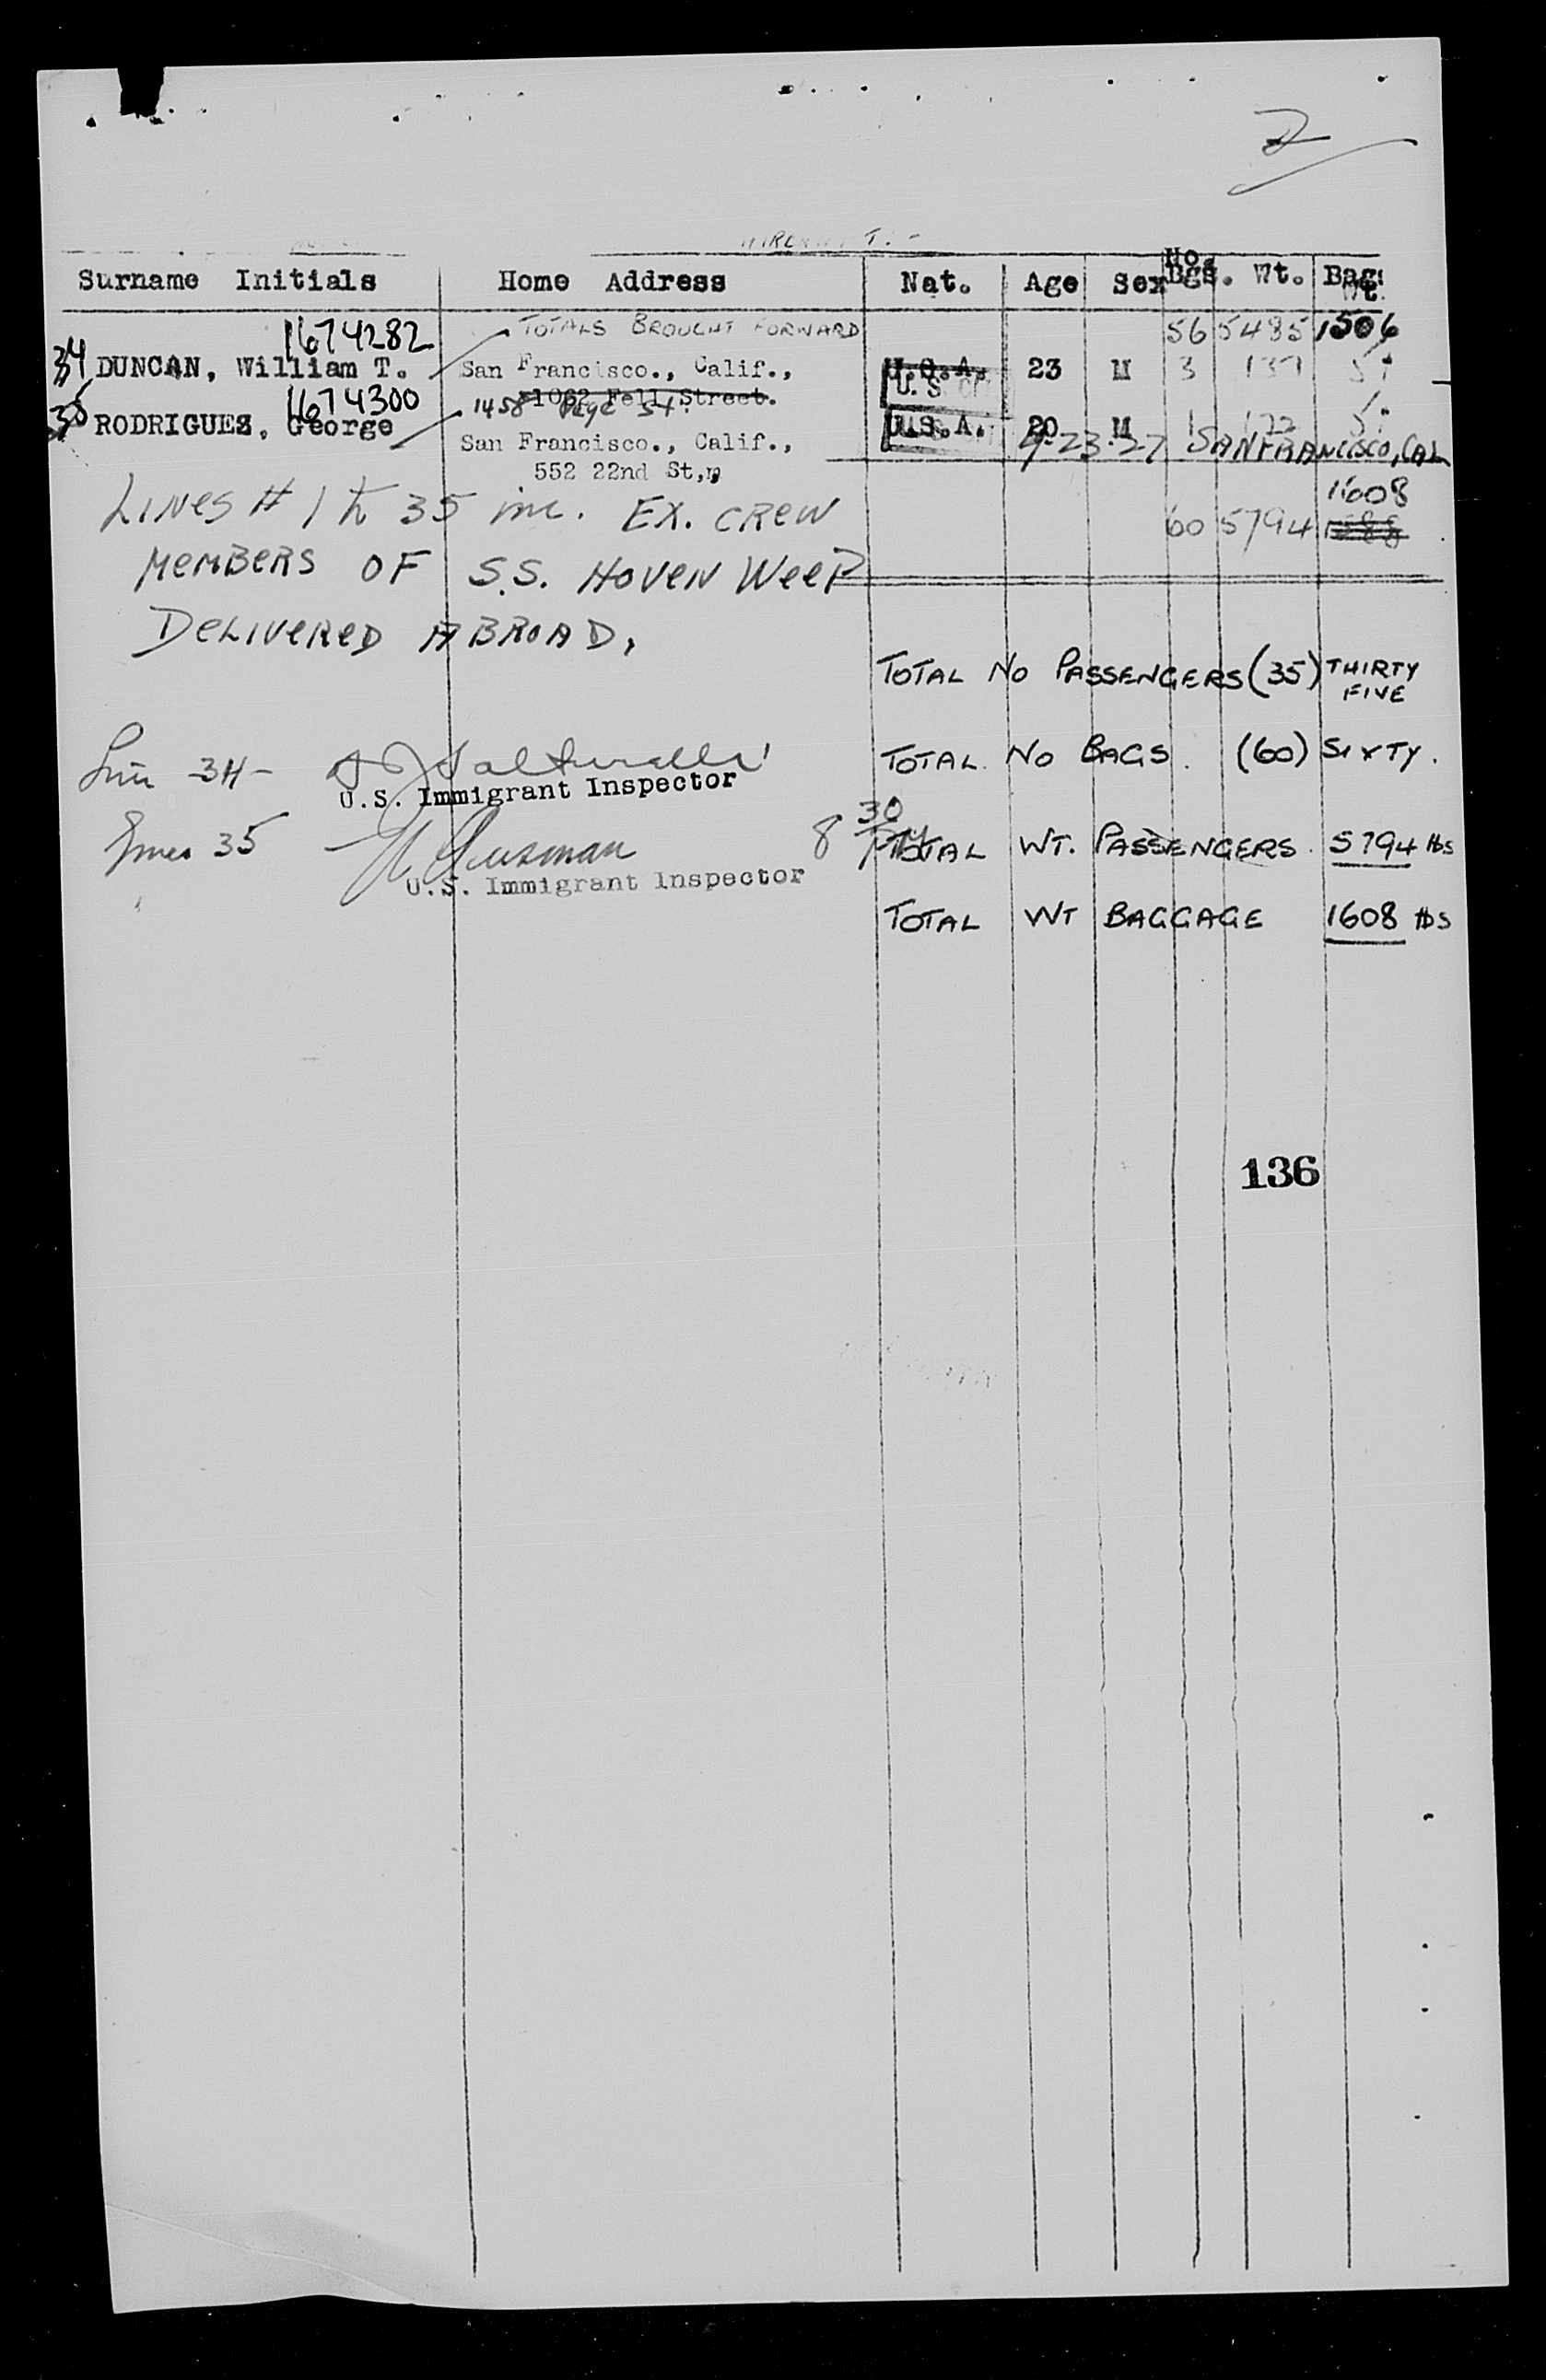 2
Surname Initials Home Address Nat. Age Sex No. Bgs. Wt. Bag. Wt.
TOTALS BROUGHT FORWARD 56 5485 1506
1674282
34 DUNCAN, William T. San Francisco., Calif., U.S.A. 23 M 3 137 51
U.S.
1062 Fell Street.
1674300
1458 Page St.
35 RODRIGUEZ, George San Francisco., Calif., U.S.A. 20 M 1 172 51
4-23-27 SAN FRANCISCO, CAL
552 22nd St.,
LINES # 1 to 35 inc. EX. CREW 1608
60 5794 1588
MEMBERS OF S.S. HOVEN WEEP
DELIVERED ABROAD.
TOTAL NO PASSENGERS (35) THIRTY FIVE
TOTAL NO BAGS. (60) SIXTY.
Line 34-
U.S. Immigrant Inspector
8 30
TOTAL WT. PASSENGERS. 5794 lbs
35
U.S. Immigrant Inspector
TOTAL WT BAGGAGE 1608 lbs
136